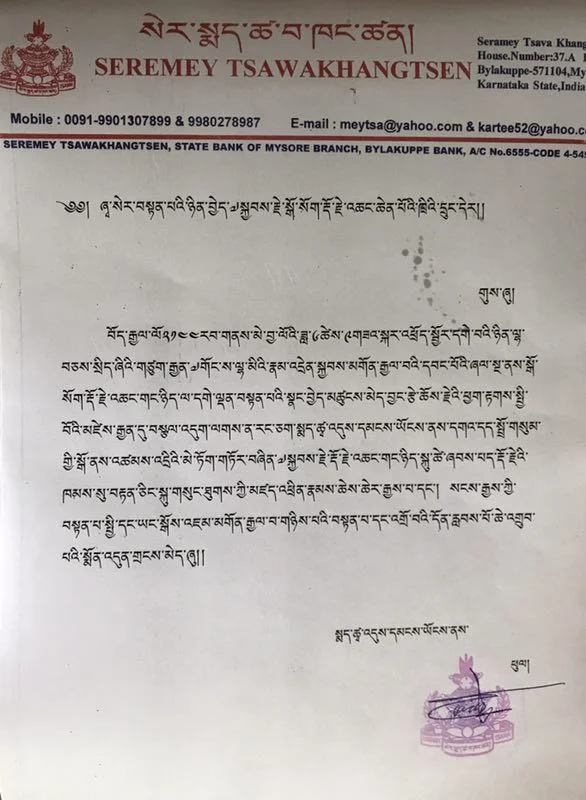 སེར་སྨད་ཚ་བ་ཁང་ཚན།
SEREMEY TSAWAKHANGTSEN
Seramey Tsava Khang
House.Number:37.A
Bylakuppe-571104,My
Karnataka State,India
Mobile : 0091-9901307899 & 9980278987 E-mail : meytsa@yahoo.com & kartee52@yahoo.co
SEREMEY TSAWAKHANGTSEN, STATE BANK OF MYSORE BRANCH, BYLAKUPPE BANK, A/C No.6555-CODE 4-545
༄༅། ཞྭ་སེར་བསྟན་པའི་ཉིན་བྱེད་༧སྐྱབས་རྗེ་སྒོ་སོག་རྡོ་རྗེ་འཆང་ཆེན་པོའི་ཁྲིའི་དྲུང་དེར།།
གུས་ཞུ།
བོད་རྒྱལ་ལོ་༢༡༤༤རབ་གནས་མེ་བྱ་ལོའི་ཟླ་༦་ཚེས་༩གཟའ་སྐར་འཕྲོད་སྦྱོར་དགེ་བའི་ཉིན་ལྷ་
བཅས་སྲིད་ཞིའི་གཙུག་རྒྱན་༧གོང་ས་ལྷ་མིའི་རྣམ་འདྲེན་སྐྱབས་མགོན་རྒྱལ་བའི་དབང་པོའི་ཞལ་སྔ་ནས་སྒོ་
སོག་རྡོ་རྗེ་འཆང་གང་ཉིད་ལ་དགེ་ལྡན་བསྟན་པའི་སྣང་བྱེད་མཚུངས་མེད་བྱང་རྩེ་ཆོས་རྗེའི་ཕྱག་རྟགས་སྤྱི་
བོའི་མཛེས་རྒྱན་དུ་བསྩལ་འདུག་ལགས་ན་རང་ཅག་སྨད་ཚྭ་འདུས་དམངས་ཡོངས་ནས་དགའ་དད་སྤྲོ་གསུམ་
གྱི་སྒོ་ནས་འཚམས་འདྲིའི་མེ་ཏོག་གཏོར་བཞིན་༧སྐྱབས་རྗེ་རྡོ་རྗེ་འཆང་གང་ཉིད་སྐུ་ཚེ་ཞབས་པད་རྡོ་རྗེའི་
ཁམས་སུ་བརྟན་ཅིང་སྐུ་གསུང་ཐུགས་ཀྱི་མཛད་འཕྲིན་རྣམས་ཆེས་ཆེར་རྒྱས་པ་དང་། སངས་རྒྱས་ཀྱི་
བསྟན་པ་སྤྱི་དང་ཡང་སྒོས་འཇམ་མགོན་རྒྱལ་བ་གཉིས་པའི་བསྟན་པ་དང་འགྲོ་བའི་དོན་རླབས་པོ་ཆེ་འགྲུབ་
པའི་སྨོན་འདུན་གྲངས་མེད་ཞུ།།
སྨད་ཚྭ་འདུས་དམངས་ཡོངས་ནས་
ཕུལ།